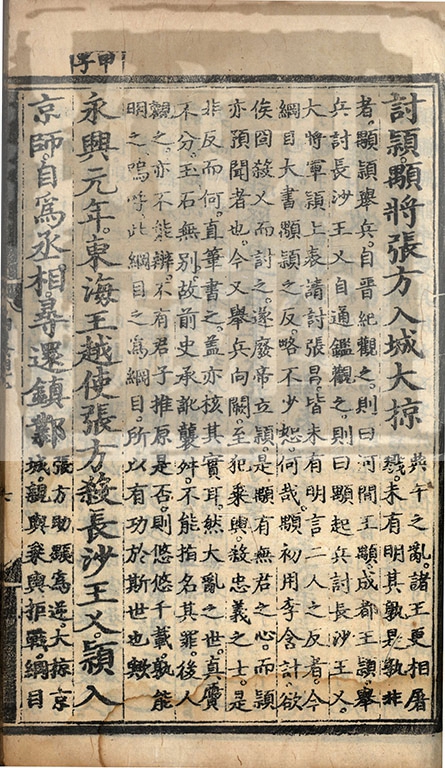 甲子
討穎。顒將張方入城大掠
典午之亂。諸王更相屠
戮。未有明其孰是孰非
者。顒穎舉兵。自晉紀觀之。則曰河間王顒。成都王穎。舉
兵討長沙王乂。自通鑑觀之。則曰顒起兵討長沙王乂。
大將軍穎上表請討張昌。皆未有明言二人之反者。今
綱目大書顒穎之反。略不少恕。何哉。顒初用李含計。欲
俟冏殺乂而討之。遂廢帝立穎。是顒有無君之心。而穎
亦預聞者也。今又舉兵向闕。至犯乘輿。殺忠義之士。是
非反而何。直筆書之。蓋亦核其實耳。然大亂之世。真贗
不分。玉石無別。故前史承訛襲舛。不能指名其罪。後人
觀之。亦不能辨。不有君子推原是否。則悠悠千載。孰能
明之。嗚呼。此綱目之爲綱目。所以有功於斯世也歟
永興元年。東海王越使張方殺長沙王乂。穎入
京師。自爲丞相。尋還鎮鄴
張方助顒爲逆。大掠京
城。親與乘輿拒戰。綱目